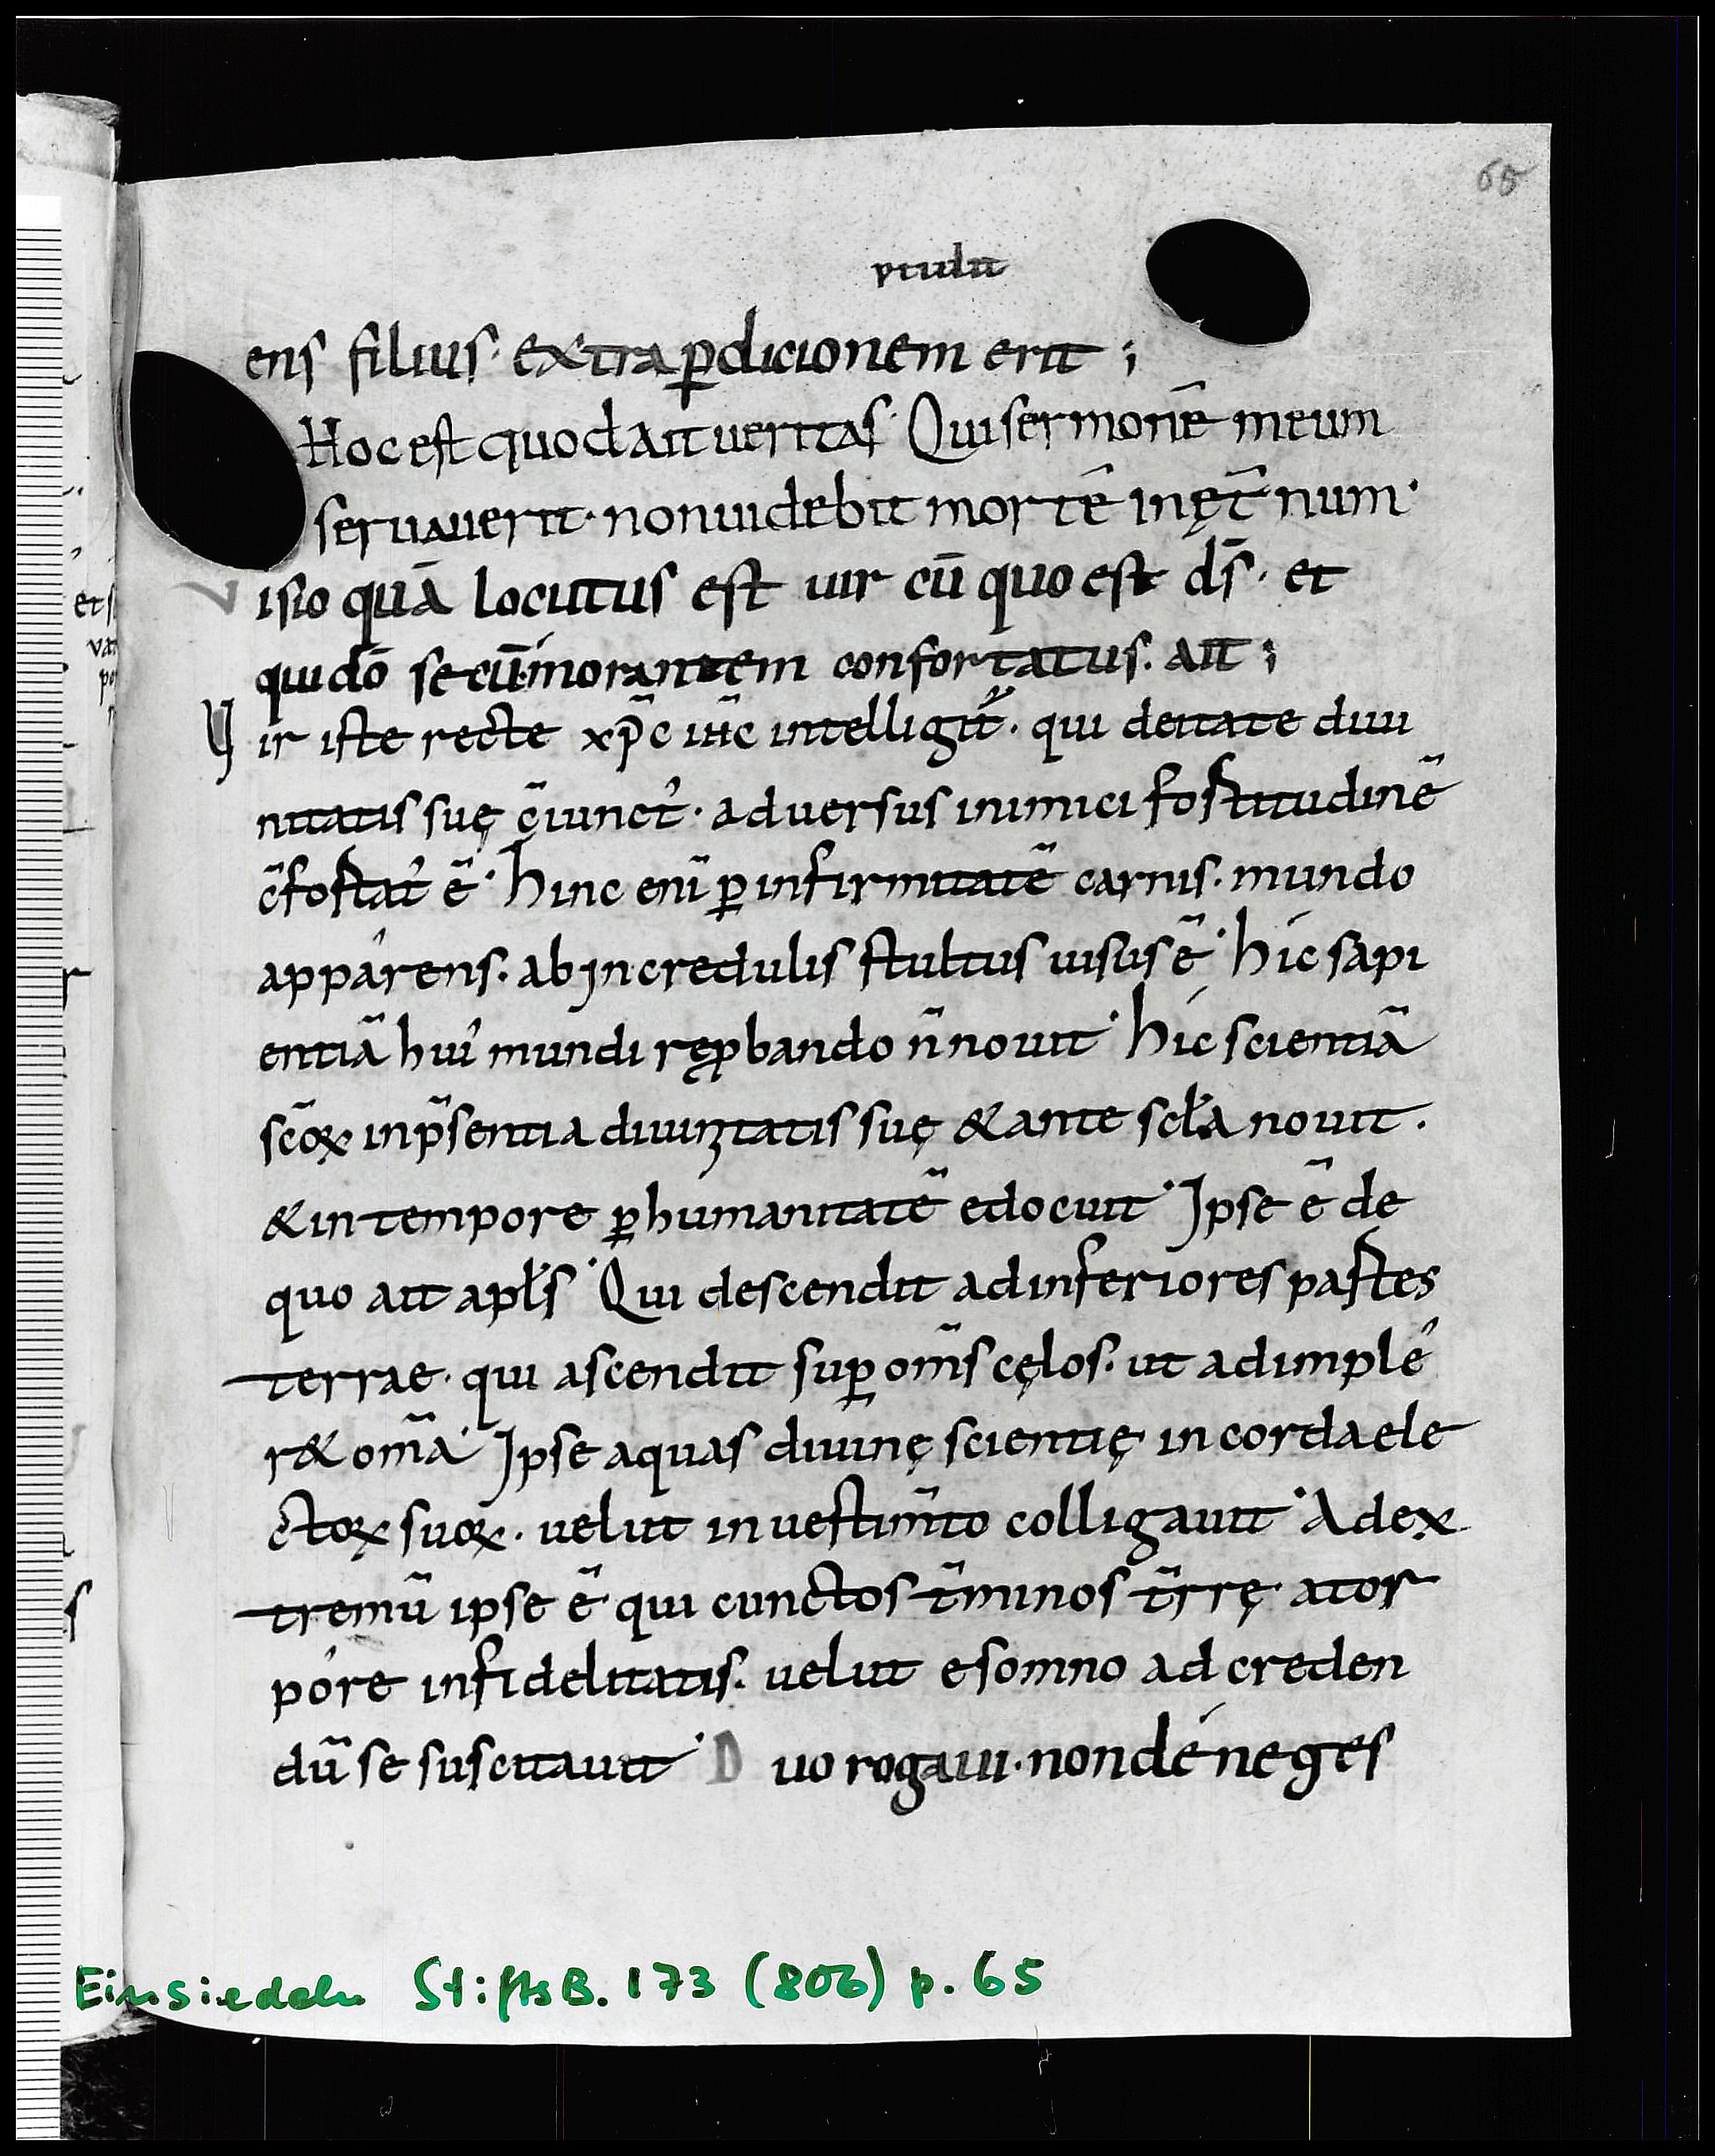 65
ens filius· extra ꝑdicionem erit ;
Hoc est quod ait ueritas· Qui sermonē meum
seruauerit· non uidebit mortē in ęt̄num·
V isio quā locutus est uir cū quo est ds̄· et
qui dō secū morantem confortatus· ait ;
V ir iste recte xp̄c ih̄c intelligit᷑· qui deitate diui
nitatis suę c̄iunct᾽· aduersus inimici fortitudinē
c̄fortat᾽ ē· hinc eni̅ ꝑ infirmitatē carnis· mundo
apparens· ab incredulis stultus uisus ē· hic sapi
entiā hui᾽ mundi rep̱bando n̄ nouit· hic scientiā
scōꝝ in p̄sentia diuinitatis suę & ante scl̄a nouit·
& in tempore ꝑ humanitatē edocuit· Ipse ē de
quo ait apl̄s· Qui descendit ad inferiores partes
terrae· qui ascendit suꝑ om̄s cęlos· ut adimple
r& om̄a· Ipse aquas diuinę scientię in corda ele
ctoꝝ suoꝝ· uelut in uestim̄to colligauit· Ad ex
tremū ipse ē qui cunctos t̄minos t̄rrę· a tor
pore infidelitatis· uelut e somno ad creden
dū se suscitauit· D uo rogaui· non déneges
Einsiedeln StiftsB. 173 (806) p. 65